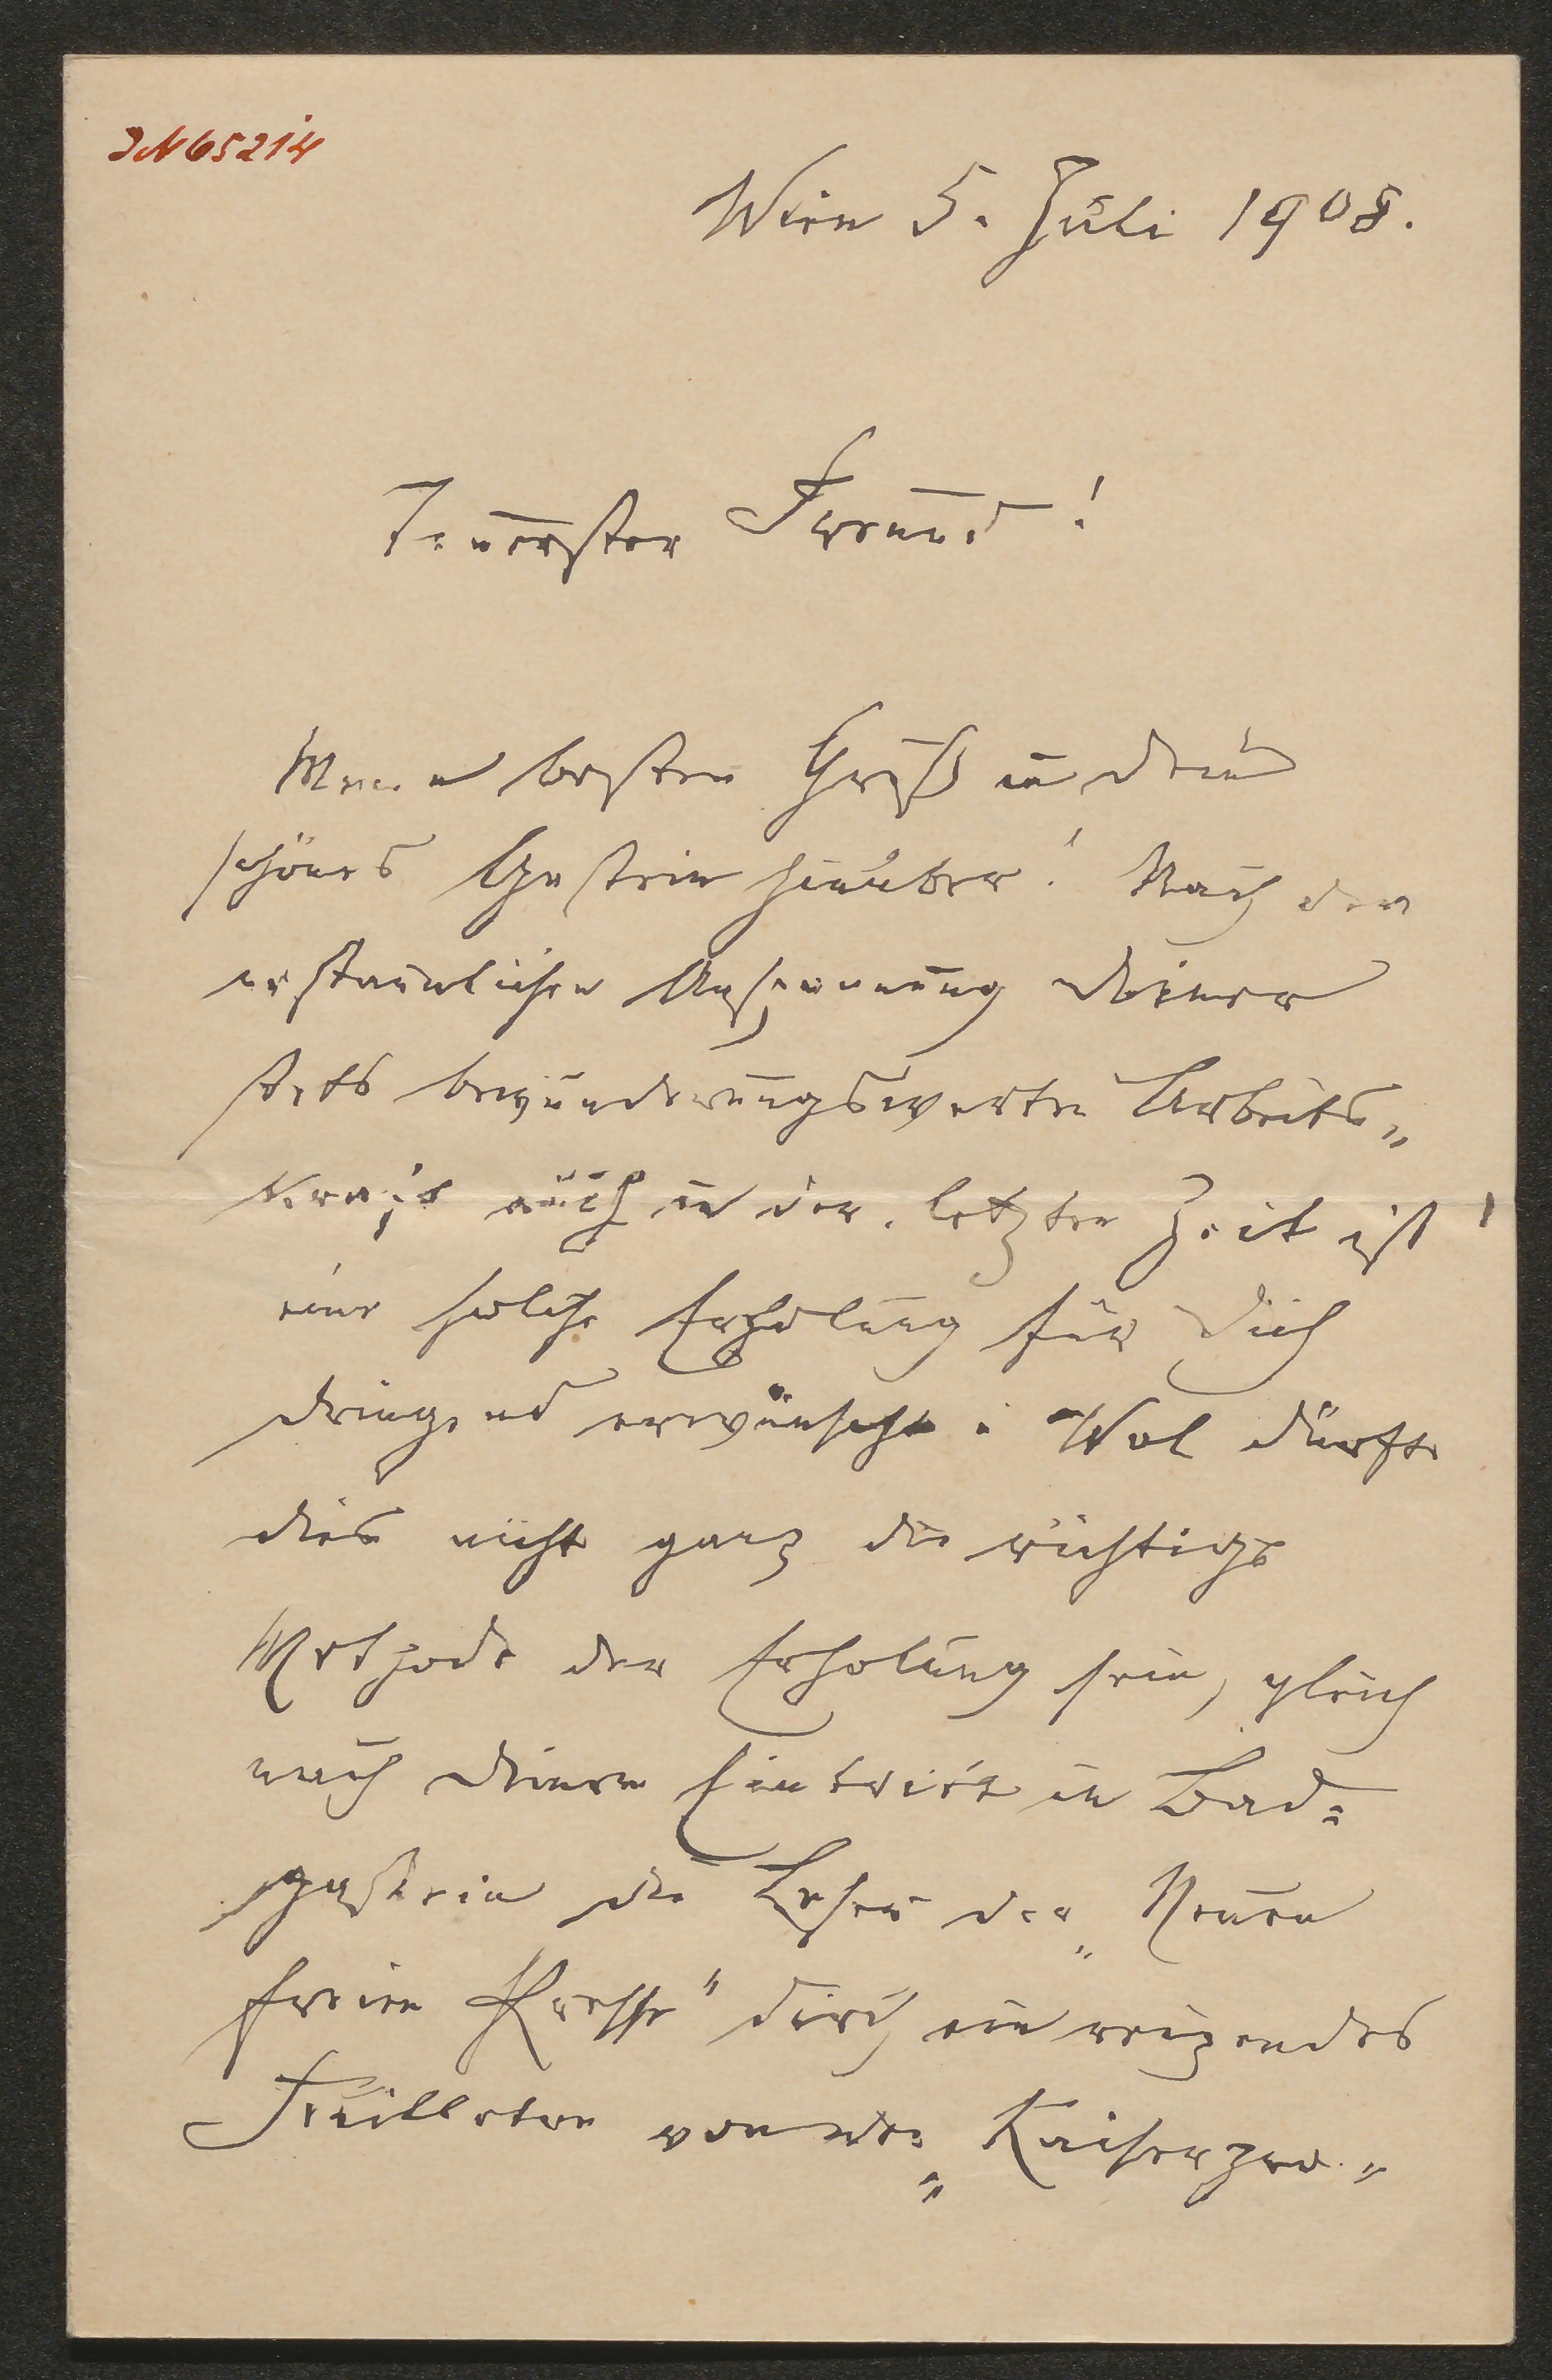 IN 65214
Wien 5. Juli 1908.
Teuerster Freund!
Meinen besten Gruß in dein
schönes Gastein hinüber! Nach der
erstaunlichen Anspannung deiner
stets bewunderungswerten Arbeits„
kraft auch in der letzten Zeit ist
eine solche Erholung für dich
dringend erwünscht. Wol dürfte
dies nicht ganz die richtige
Methode der Erholung sein, gleich
nach deinem Eintritt in Bad=
gastein die Leser der „Neuen
freien Presse" durch ein reizendes
Feuilleton von der „Kaiserzeu„